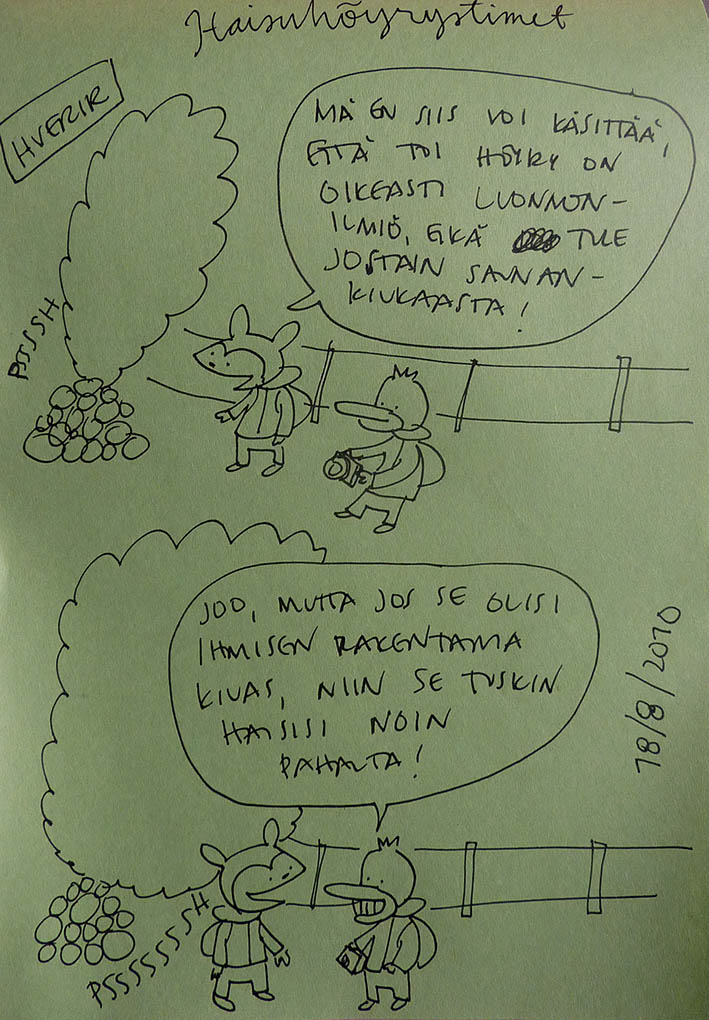 Haisuhöyrystimet
HVERIR
MÄ EN SIIS VOI KÄSITTÄÄ,
ETTÄ TOI HÖYRY ON
OIKEASTI LUONNON-
ILMIÖ, EIKÄ TULE
JOSTAIN SAUNAN-
KIUKAASTA!
PSSSSH
JOO, MUTTA JOS SE OLISI
IHMISEN RAKENTAMA
KIUAS, NIIN SE TUSKIN
HAISISI NOIN
PAHALTA!
18/8/2010
PSSSSSSSSH